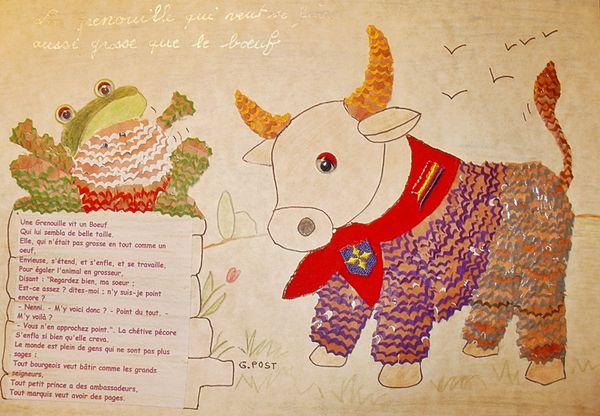 La grenouille qui veut se faire
aussi grosse que le bœuf
Une Grenouille vit un Boeuf
Qui lui sembla de belle taille.
Elle, qui n'était pas grosse en tout comme un
oeuf,
Envieuse, s'étend, et s'enfle, et se travaille,
Pour égaler l'animal en grosseur,
Disant : "Regardez bien, ma soeur ;
Est-ce assez ? dites-moi ; n'y suis-je point
encore ?
- Nenni. - M'y voici donc ? - Point du tout. -
M'y voilà ?
- Vous n'en approchez point.". La chétive pécore
S'enfla si bien qu'elle creva.
Le monde est plein de gens qui ne sont pas plus
sages :
Tout bourgeois veut bâtir comme les grands
seigneurs,
Tout petit prince a des ambassadeurs,
Tout marquis veut avoir des pages.
G.POST